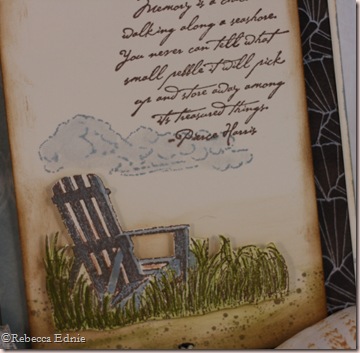 Memory is a
walking along a seashore.
You never can tell what
small pebble it will pick
up and store away among
its treasured things.
-Pierce Harris
©Rebecca Ednie